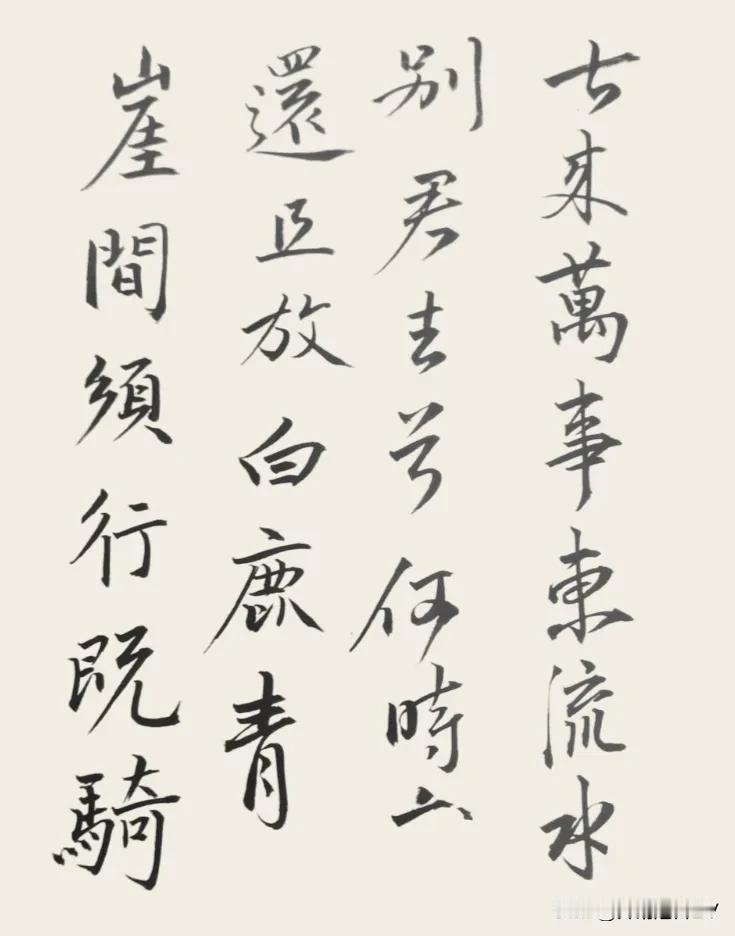 古来萬事東流水
别君去兮何時
還且放白鹿青
崖間須行既騎